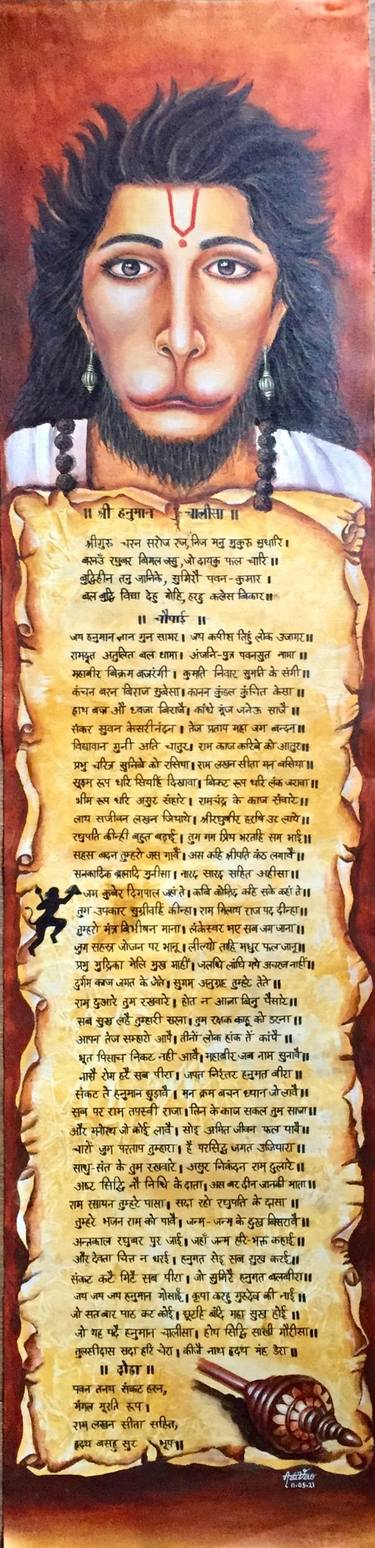 ॥ श्री हनुमान चालीसा ॥
श्रीगुरु चरन सरोज रज, निज मनु मुकुरु सुधारि।
बरनउँ रघुबर बिमल जसु, जो दायकु फल चारि॥
बुद्धिहीन तनु जानिके, सुमिरौं पवन-कुमार।
बल बुद्धि विद्या देहु मोहि, हरहु कलेस बिकार॥
॥ चौपाई ॥
जय हनुमान ज्ञान गुन सागर। जय कपीस तिहुं लोक उजागर॥
रामदूत अतुलित बल धामा। अंजनि-पुत्र पवनसुत नामा॥
महाबीर बिक्रम बजरंगी। कुमति निवार सुमति के संगी॥
कंचन बरन विराज सुबेसा। कानन कुंडल कुंचित केसा॥
हाथ बज्र औ ध्वजा बिराजै। कांधे मूंज जनेऊ साजै॥
संकर सुवन केसरीनंदन। तेज प्रताप महा जग बन्दन॥
विद्यावान गुनी अति चातुर। राम काज करिबे को आतुर॥
प्रभु चरित्र सुनिबे को रसिया। राम लखन सीता मन बसिया॥
सूक्ष्म रूप धरि सियहिं दिखावा। बिकट रूप धरि लंक जरावा॥
भीम रूप धरि असुर संहारे। रामचंद्र के काज संवारे॥
लाय सजीवन लखन जियाये। श्रीरघुबीर हरषि उर लाये॥
रघुपति कीन्ही बहुत बड़ाई। तुम मम प्रिय भरतहि सम भाई॥
सहस बदन तुम्हरो जस गावैं। अस कहि श्रीपति कंठ लगावैं॥
सनकादिक ब्रह्मादि मुनीसा। नारद सारद सहित अहीसा॥
जम कुबेर दिगपाल जहां ते। कवि कोबिद कहि सके कहां ते॥
तुम उपकार सुग्रीवहिं कीन्हा। राम मिलाय राज पद दीन्हा॥
तुम्हरो मंत्र बिभीषन माना। लंकेस्वर भए सब जग जाना॥
जुग सहस्र जोजन पर भानू। लील्यो ताहि मधुर फल जानू॥
प्रभु मुद्रिका मेलि मुख माहीं। जलधि लांघि गये अचरज नाहीं॥
दुर्गम काज जगत के जेते। सुगम अनुग्रह तुम्हरे तेते॥
राम दुआरे तुम रखवारे। होत न आज्ञा बिनु पैसारे॥
सब सुख लहै तुम्हारी सरना। तुम रक्षक काहू को डरना॥
आपन तेज सम्हारो आपै। तीनों लोक हांक तें कांपै॥
भूत पिसाच निकट नहीं आवै। महाबीर जब नाम सुनावै॥
नासै रोग हरै सब पीरा। जपत निरंतर हनुमत बीरा॥
संकट तें हनुमान छुड़ावै। मन क्रम बचन ध्यान जो लावै॥
सब पर राम तपस्वी राजा। तिन के काज सकल तुम साजा॥
और मनोरथ जो कोई लावै। सोइ अमित जीवन फल पावै॥
चारों जुग परताप तुम्हारा। है परसिद्ध जगत उजियारा॥
साधु-संत के तुम रखवारे। असुर निकंदन राम दुलारे॥
अष्ट सिद्धि नौ निधि के दाता। अस बर दीन जानकी माता॥
राम रसायन तुम्हरे पासा। सदा रहो रघुपति के दासा॥
तुम्हरे भजन राम को पावै। जन्म-जन्म के दुख बिसरावै॥
अन्तकाल रघुबर पुर जाई। जहाँ जन्म हरि-भक्त कहाई॥
और देवता चित्त न धरई। हनुमत सेइ सब सुख करई॥
संकट कटै मिटै सब पीरा। जो सुमिरै हनुमत बलबीरा॥
जय जय जय हनुमान गोसाईं। कृपा करहु गुरुदेव की नाईं॥
जो सत बार पाठ कर कोई। छूटहि बंदि महा सुख होई॥
जो यह पढ़ै हनुमान चालीसा। होय सिद्धि साखी गौरीसा॥
तुलसीदास सदा हरि चेरा। कीजै नाथ हृदय मंह डेरा॥
॥ दोहा ॥
पवन तनय संकट हरन,
मंगल मूरति रूप।
राम लखन सीता सहित,
हृदय बसहु सुर भूप॥
11-05-21